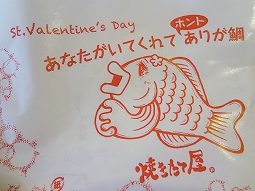 St.Valentine's Day
ホント
あなたがいてくれてありが鯛
焼きたて屋